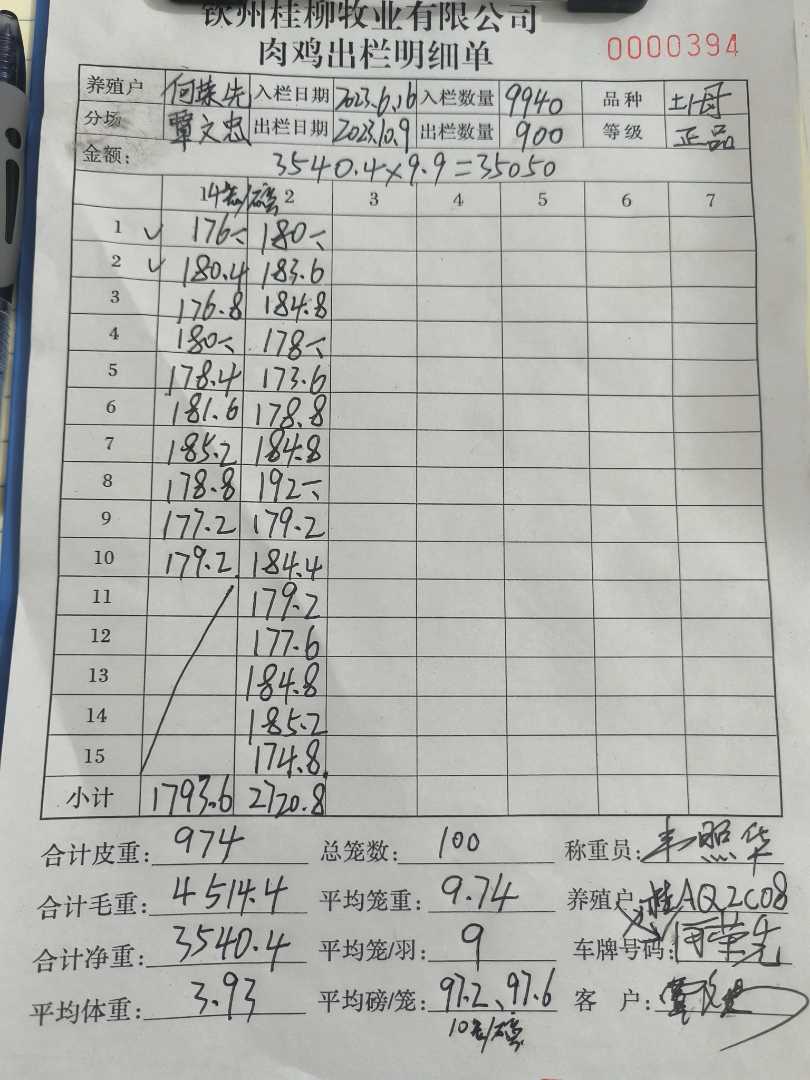 钦州桂柳牧业有限公司
肉鸡出栏明细单 0000394
养殖户 何荣先 入栏日期 2023.6.16 入栏数量 9940 品种 土2母
分场 覃文忠 出栏日期 2023.10.9 出栏数量 900 等级 正品
金额: 3540.4×9.9=35050
14笼/磅 2 3 4 5 6 7
1 ✓ 176.- 180.-
2 ✓ 180.4 183.6
3 176.8 184.8
4 180.- 178.-
5 178.4 173.6
6 181.6 178.8
7 185.2 184.8
8 178.8 192.-
9 177.2 179.2
10 179.2 184.4
11 179.2
12 177.6
13 184.8
14 185.2
15 174.8
小计 1793.6 2720.8
合计皮重: 974 总笼数: 100 称重员:
合计毛重: 4514.4 平均笼重: 9.74 养殖户: 桂AQ2C08
合计净重: 3540.4 平均笼/羽: 9 车牌号码: 何荣先
平均体重: 3.93 平均磅/笼: 97.2、97.6 客 户:
10笼/磅